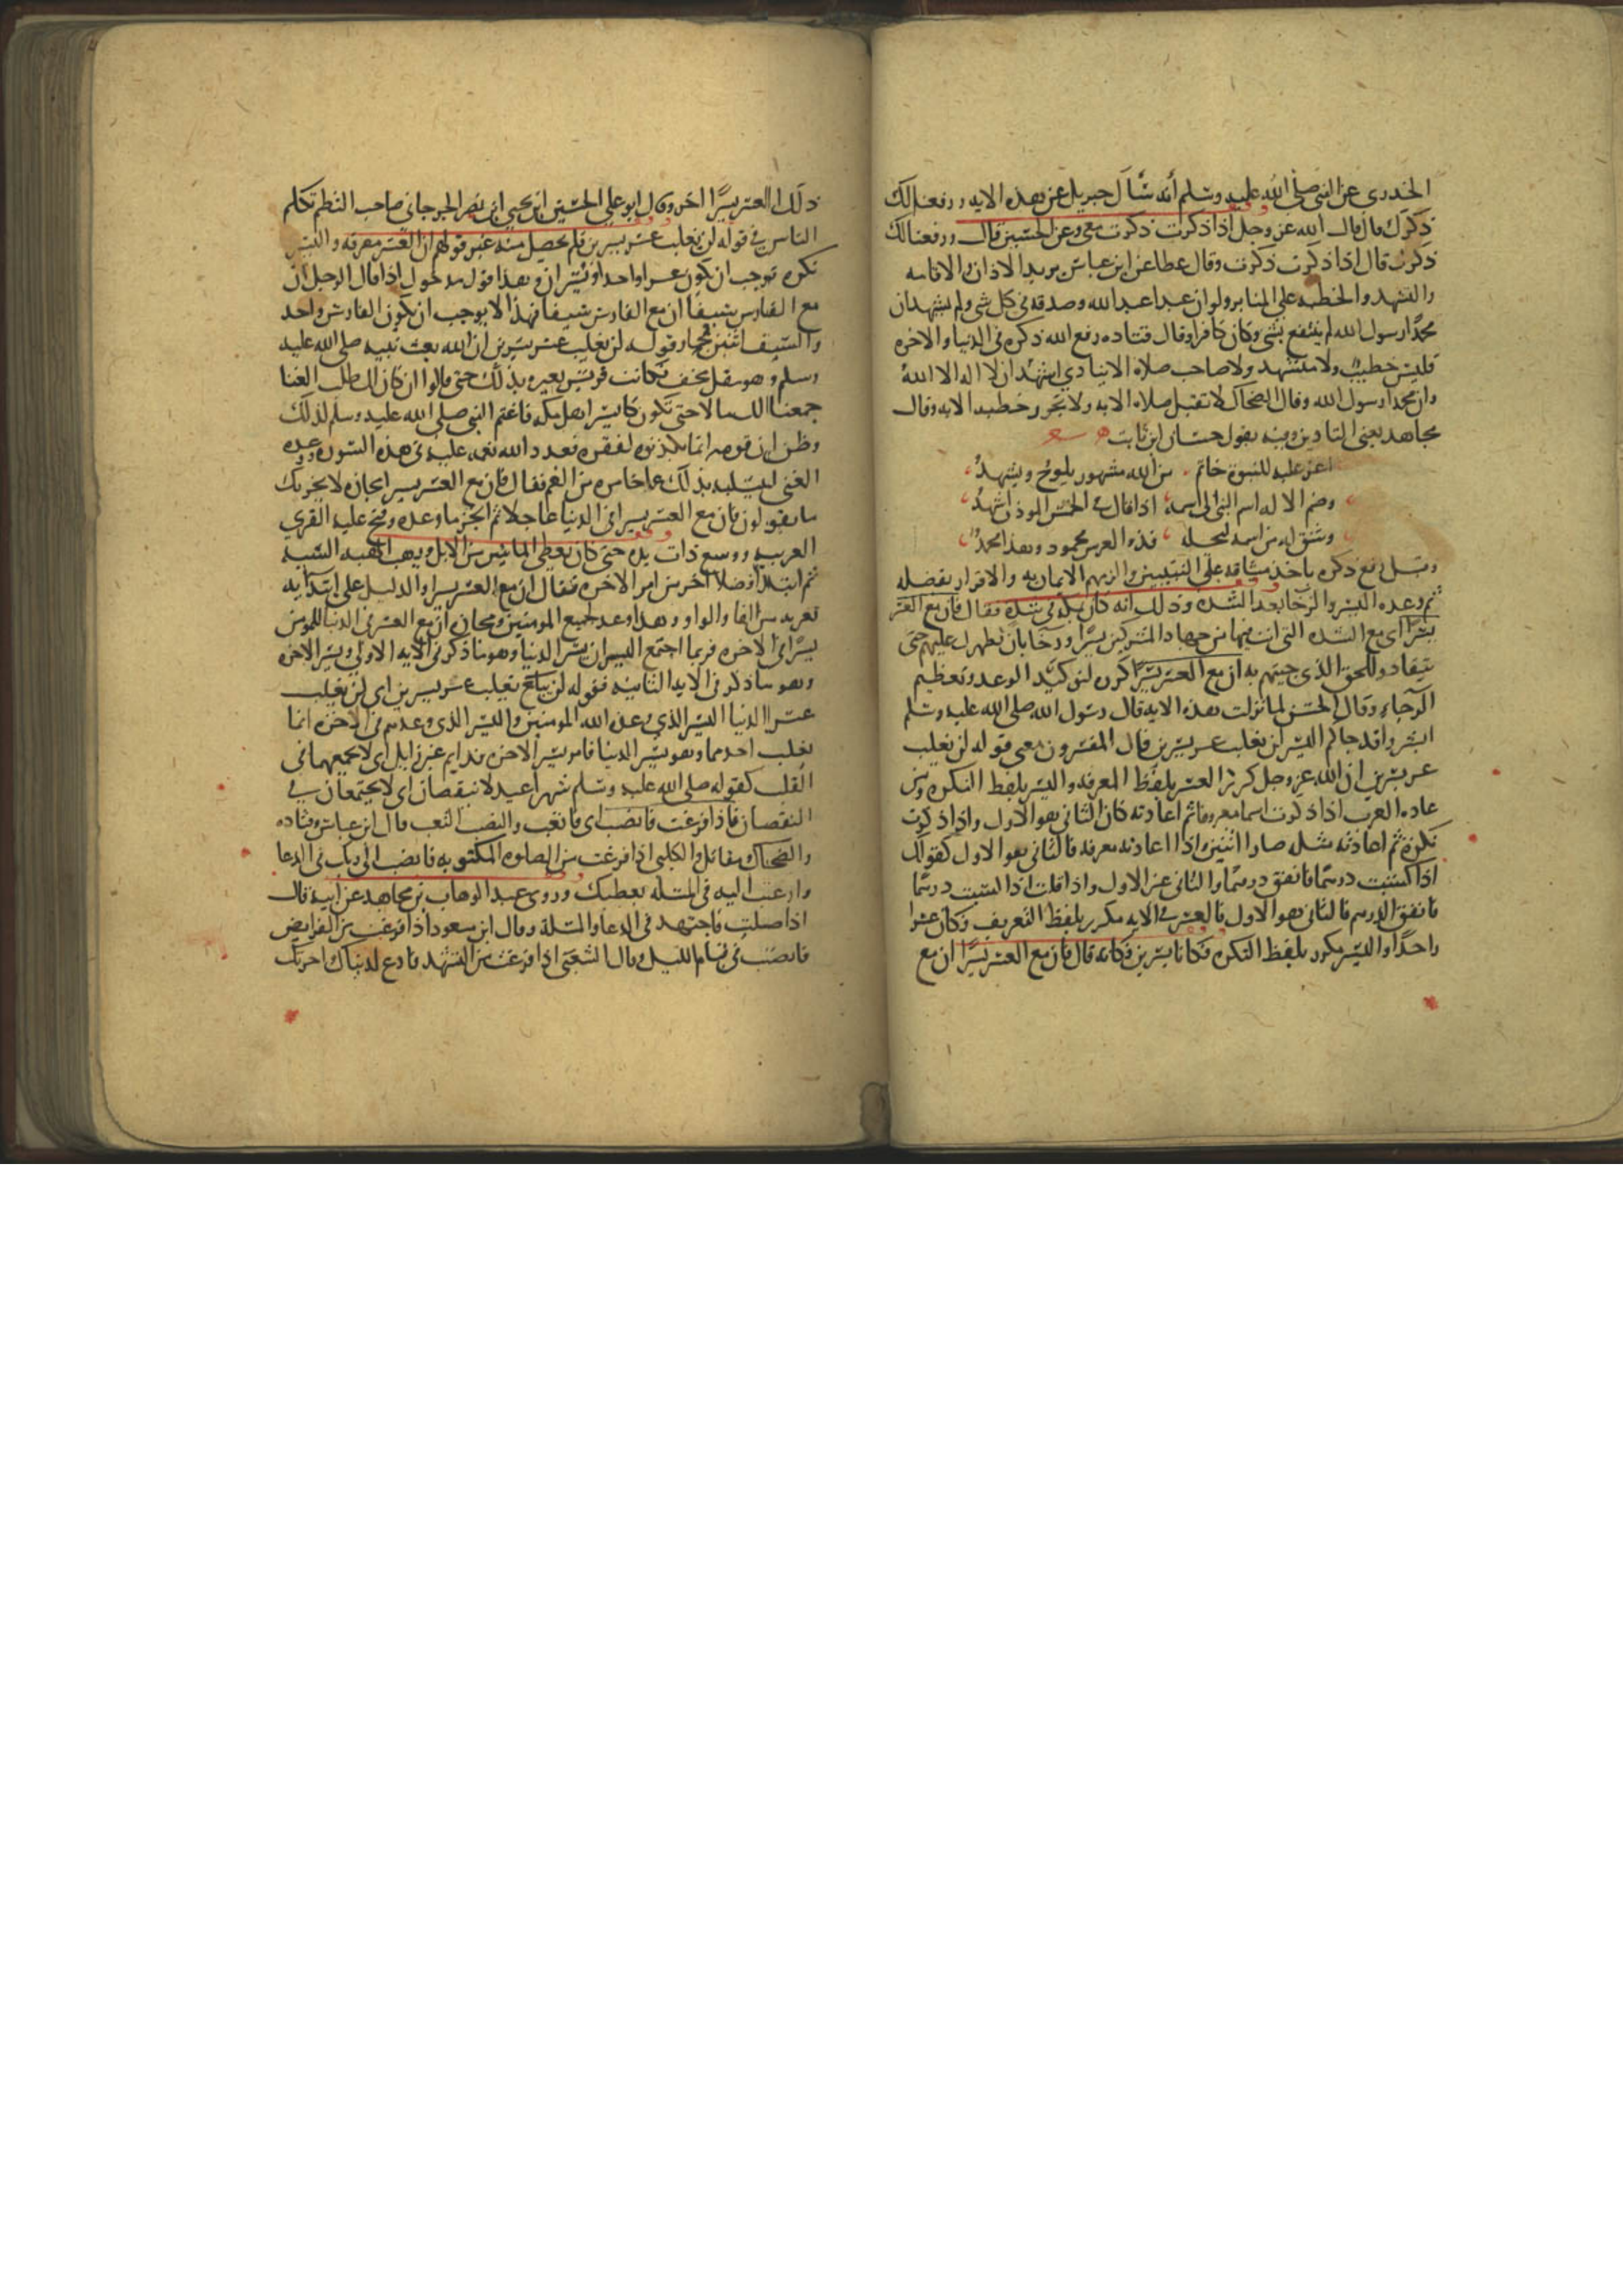 الخدري عن النبي صلى الله عليه وسلم أنه سأل جبريل عن هذه الايه ورفعنا لك
ذكرك قال قال الله عز وجل اذا ذكرت ذكرت معي وعن الحسن قال ورفعنا لك
ذكرك قال اذا ذكرت ذكرت وقال عطا عن ابن عباس يريد الاذان والاقامه
والتشهد والخطبه على المنابر ولو ان عبدا عبد الله وصدقه في كل شي ولم يشهد ان
محمدا رسول الله لم ينتفع بشي وكان كافرا وقال قتاده رفع الله ذكره في الدنيا والاخره
فليس خطيب ولا متشهد ولا صاحب صلاه الا ينادي اشهد ان لا اله الا الله
وان محمدا رسول الله وقال الضحاك لا تقبل صلاه الا به ولا تجوز خطبه الا به وقال
مجاهد يعني التاذين وفيه يقول حسان ابن ثابت
اغر عليه للنبوة خاتم من الله مشهور يلوح ويشهد
وضم الاله اسم النبي الى اسمه اذا قال في الخمس الموذن اشهد
وشق له من اسمه ليجله فذو العرش محمود وهذا محمد
وقيل رفع ذكره باخذ ميثاقه على النبيين والزمهم الايمان به والاقرار بفضله
ثم وعده اليسر والرخا بعد الشده وذلك انه كان بمكه في شده فقال فان مع العسر
يسرا اي مع الشده التي انت فيها من جهاد المشركين يسرا ورخا بان نظهرك عليهم حتى
ينقادوا للحق الذي جيتهم به ان مع العسر يسرا كرره لتوكيد الوعد وتعظيم
الرجاء وقال الحسن لما نزلت هذه الايه قال رسول الله صلى الله عليه وسلم
ابشروا قد جاكم اليسر لن يغلب عسر يسرين قال المفسرون معنى قوله لن يغلب
عسر يسرين ان الله عز وجل كرر العسر بلفظ المعرفه واليسر بلفظ النكره ومن
عاده العرب اذا ذكرت اسما معروفا ثم اعادته كان الثاني هو الاول واذا ذكرت
نكرة ثم اعادته مثله صارا اثنين واذا اعادته معرفه فالثاني هو الاول كقولك
اذا كسبت درهما فانفق درهما فالثاني غير الاول واذا قلت اذا كسبت درهما
فانفق الدرهم فالثاني هو الاول فالعسر في الايه مكرر بلفظ التعريف فكان عسرا
واحدا واليسر مكرر بلفظ النكره فكانا يسرين فكانه قال فان مع العسر يسرا ان مع
ذلك العسر يسرا اخر وقال ابو علي الحسين ابن يحيى ابن نصر الجرجاني صاحب النظم تكلم
الناس في قوله لن يغلب عسر يسرين فلم يحصل منه غير قولهم ان العسر معرفه واليسر
نكره فوجب ان يكون عسرا واحدا ويسران وهذا قول مدخول اذا قال الرجل ان
مع الفارس سيفا ان مع الفارس سيفا فهذا لا يوجب ان يكون الفارس واحد
والسيف اثنين فمجاز قوله لن يغلب عسر يسرين ان الله بعث نبيه صلى الله عليه
وسلم وهو مقل مخف فكانت قريش تعيره بذلك حتى قالوا ان كان بك طلب الغنا
جمعنا لك مالا حتى تكون كايسر اهل مكه فاغتم النبي صلى الله عليه وسلم لذلك
وظن ان قومه انما يكذبوه لفقره فعدد الله نعمه عليه في هذه السوره ووعده
الغنى ليسليه بذلك عما خامره من الغم فقال فان مع العسر يسرا مجازه لا يحزنك
ما يقولون فان مع العسر يسرا في الدنيا عاجلا ثم انجز ما وعده وفتح عليه القرى
العربيه ووسع ذات يده حتى كان يعطي المائتين من الابل ويهب الهبه السنيه
ثم ابتدا فضلا اخر من امر الاخره فقال ان مع العسر يسرا والدليل على ابتدائه
تعريه من الفا والواو وهذا وعد لجميع المومنين ومجازه ان مع العسر في الدنيا للمومن
يسرا في الاخره فربما اجتمع اليسران يسر الدنيا وهو ما ذكر في الايه الاولى ويسر الاخره
وهو ما ذكر في الايه الثانيه فقوله لن يغلب عسر يسرين اي لن يغلب
عسر الدنيا اليسر الذي وعد الله المومنين واليسر الذي وعدهم في الاخره انما
يغلب احدهما وهو يسر الدنيا فاما يسر الاخره فدايم غير زايل اي لا يجمعهما في
الغلب كقوله صلى الله عليه وسلم شهرا عيد لا ينقصان اي لا يجتمعان في
النقصان فاذا فرغت فانصب اي فاتعب والنصب التعب قال ابن عباس وقتاده
والضحاك ومقاتل والكلبي اذا فرغت من الصلوه المكتوبه فانصب الى ربك في الدعا
وارغب اليه في المسله يعطيك وروى عبد الوهاب بن مجاهد عن ابيه قال
اذا صليت فاجتهد في الدعا والمسلة وقال ابن مسعود اذا فرغت من الفرايض
فانصب في قيام الليل وقال الشعبي اذا فرغت من التشهد فادع لدنياك واخرتك